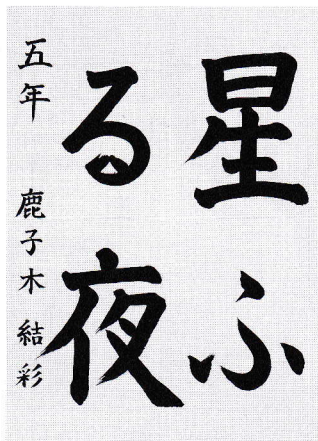 星ふ
る夜
五年 鹿子木 結彩